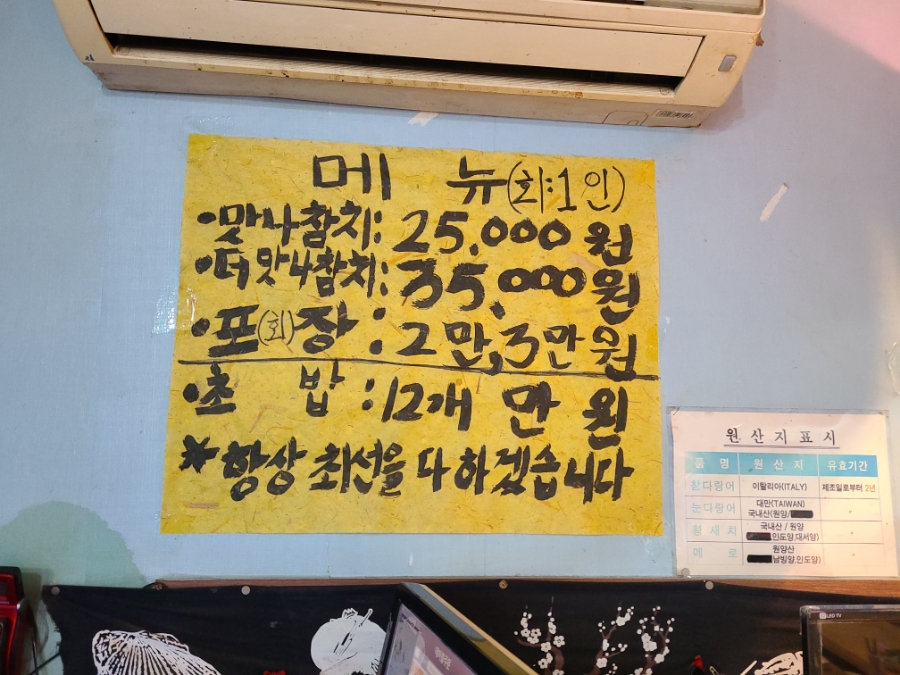 메 뉴(회:1인)
·맛나참치: 25,000원
·더맛나참치: 35,000원
·포(회)장 : 2만, 3만원
·초 밥 : 12개 만원
*항상 최선을 다하겠습니다
원산지표시
품 명 원 산 지 유효기간
참다랑어 이탈리아(ITALY) 제조일로부터 2년
눈다랑어 대만(TAIWAN)
국내산(원양/
황새치 국내산 / 원양
인도양,대서양)
메 로 원양산
남빙양,인도양)
LED TV